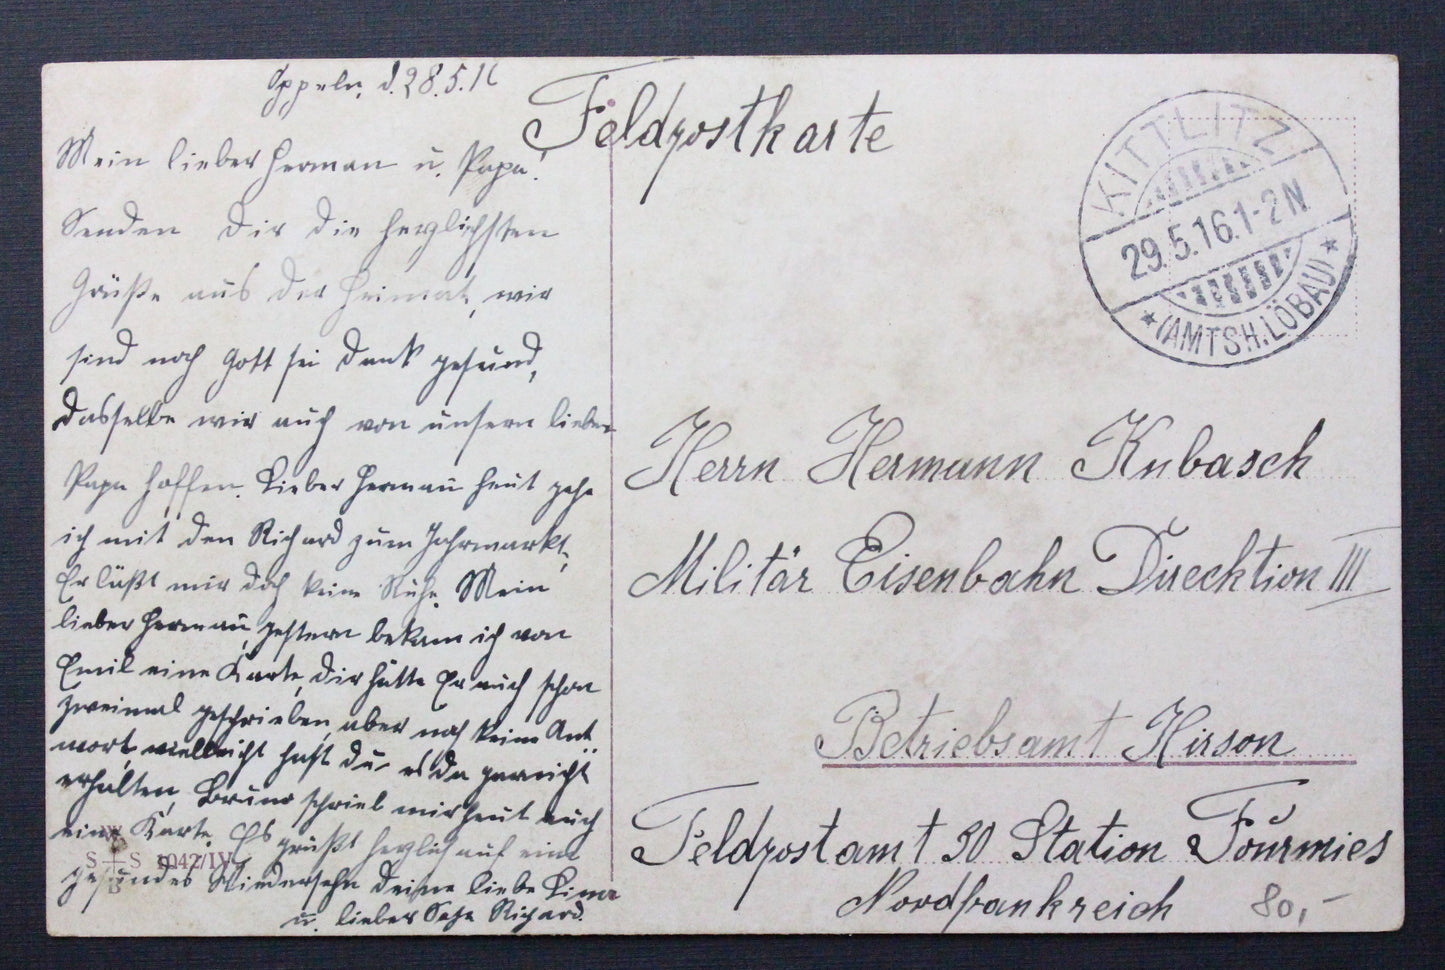 Oppeln, d. 28.5.16
Mein lieber Herman u. Papa!
Senden Dir die herzlichsten
Grüße aus der Heimat, wir
sind noch Gott sei Dank gesund,
dasselbe wir auch von unsern lieben
Papa hoffen. Lieber Herman heut gehe
ich mit den Richard zum Jahrmarkt,
Er läßt mir doch keine Ruhe. Mein
lieber Herman, gestern bekam ich von
Emil eine Karte, dir hätte Er auch schon
zweimal geschrieben, aber noch keine Ant
wort, vielleicht hast du es da garnicht
erhalten, Bruno schrieb mir heut auch
eine Karte. Es grüßt herzlich auf ein
gesundes Wiedersehn Deine liebe
u. lieber Richard.
S S 1042/IV
Feldpostkarte
KITTLITZ
29.5.16.1-2N
* (AMTSH. LÖBAU) *
Herrn Hermann Kubasch
Militär Eisenbahn Direcktion III
Betriebsamt Hirson
Feldpostamt 30 Station Fourmies
Nordfrankreich
80,-